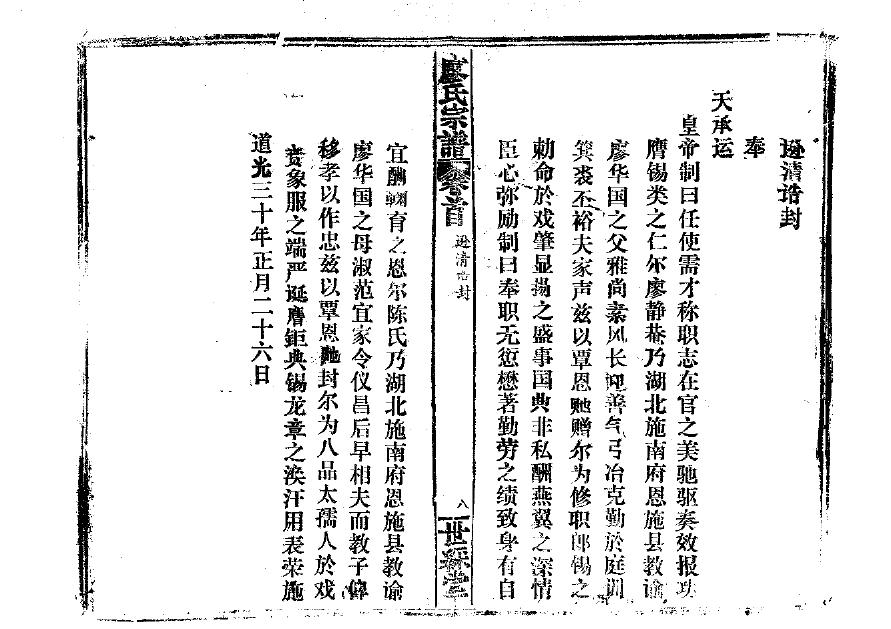 逊清诰封
奉
天承运
皇帝制曰任使需才称职志在官之美驰驱奏效报功
膺锡类之仁尔廖静菴乃湖北施南府恩施县教谕
廖华国之父雅尚素风长迎善气弓冶克勤於庭训
箕裘丕裕夫家声兹以覃恩貤赠尔为修职郎锡之
勅命於戏肇显扬之盛事国典非私酬燕翼之深情
臣心弥励制曰奉职无愆懋著勤劳之绩致身有自
廖氏宗谱
卷首
逊清诰封
八
世䌽堂
宜酬鞠育之恩尔陈氏乃湖北施南府恩施县教谕
廖华国之母淑范宜家令仪昌后早相夫而教子俾
移孝以作忠兹以覃恩貤封尔为八品太孺人於戏
贲象服之端严诞膺钜典锡龙章之涣汗用表荣施
道光三十年正月二十六日